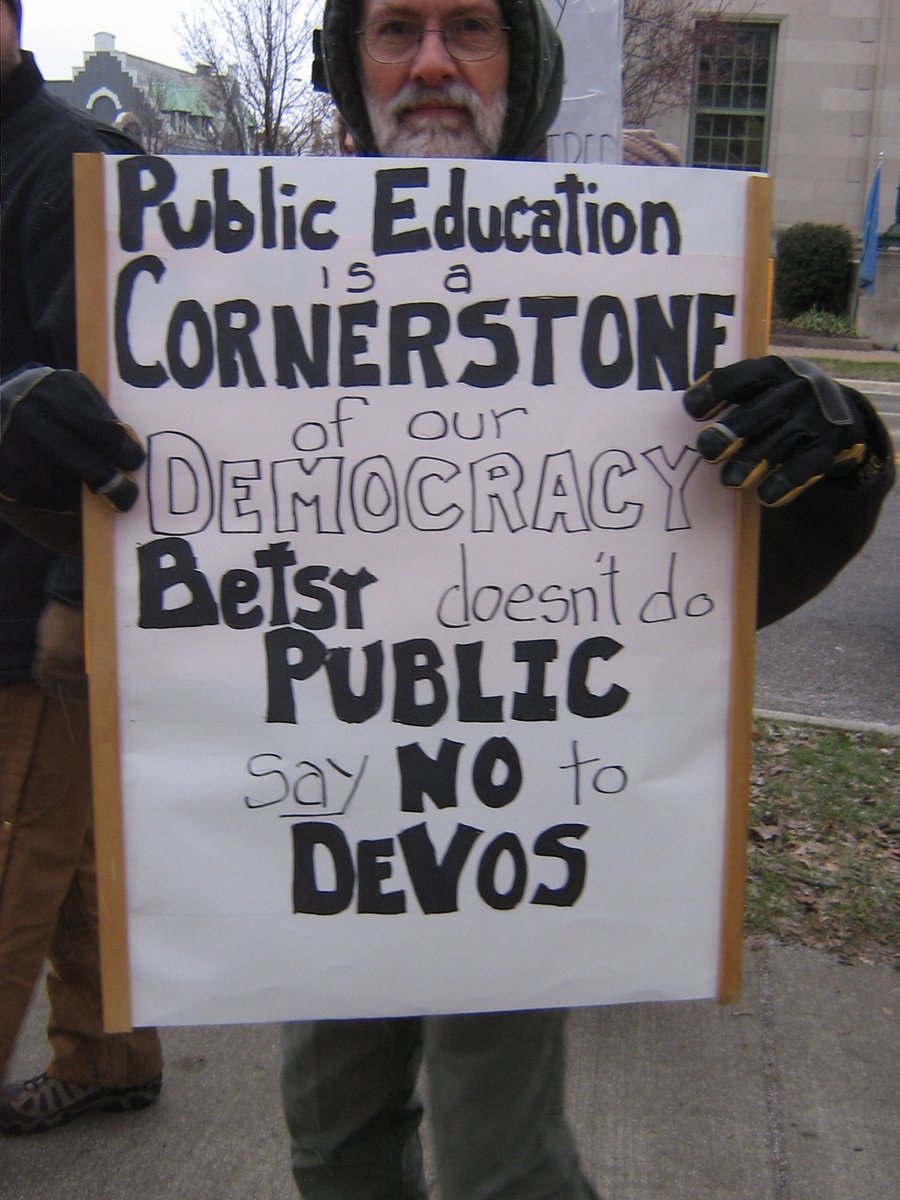 Public Education
is a
CORNERSTONE
of our
DEMOCRACY
Betsy doesn't do
PUBLIC
say NO to
DEVOS